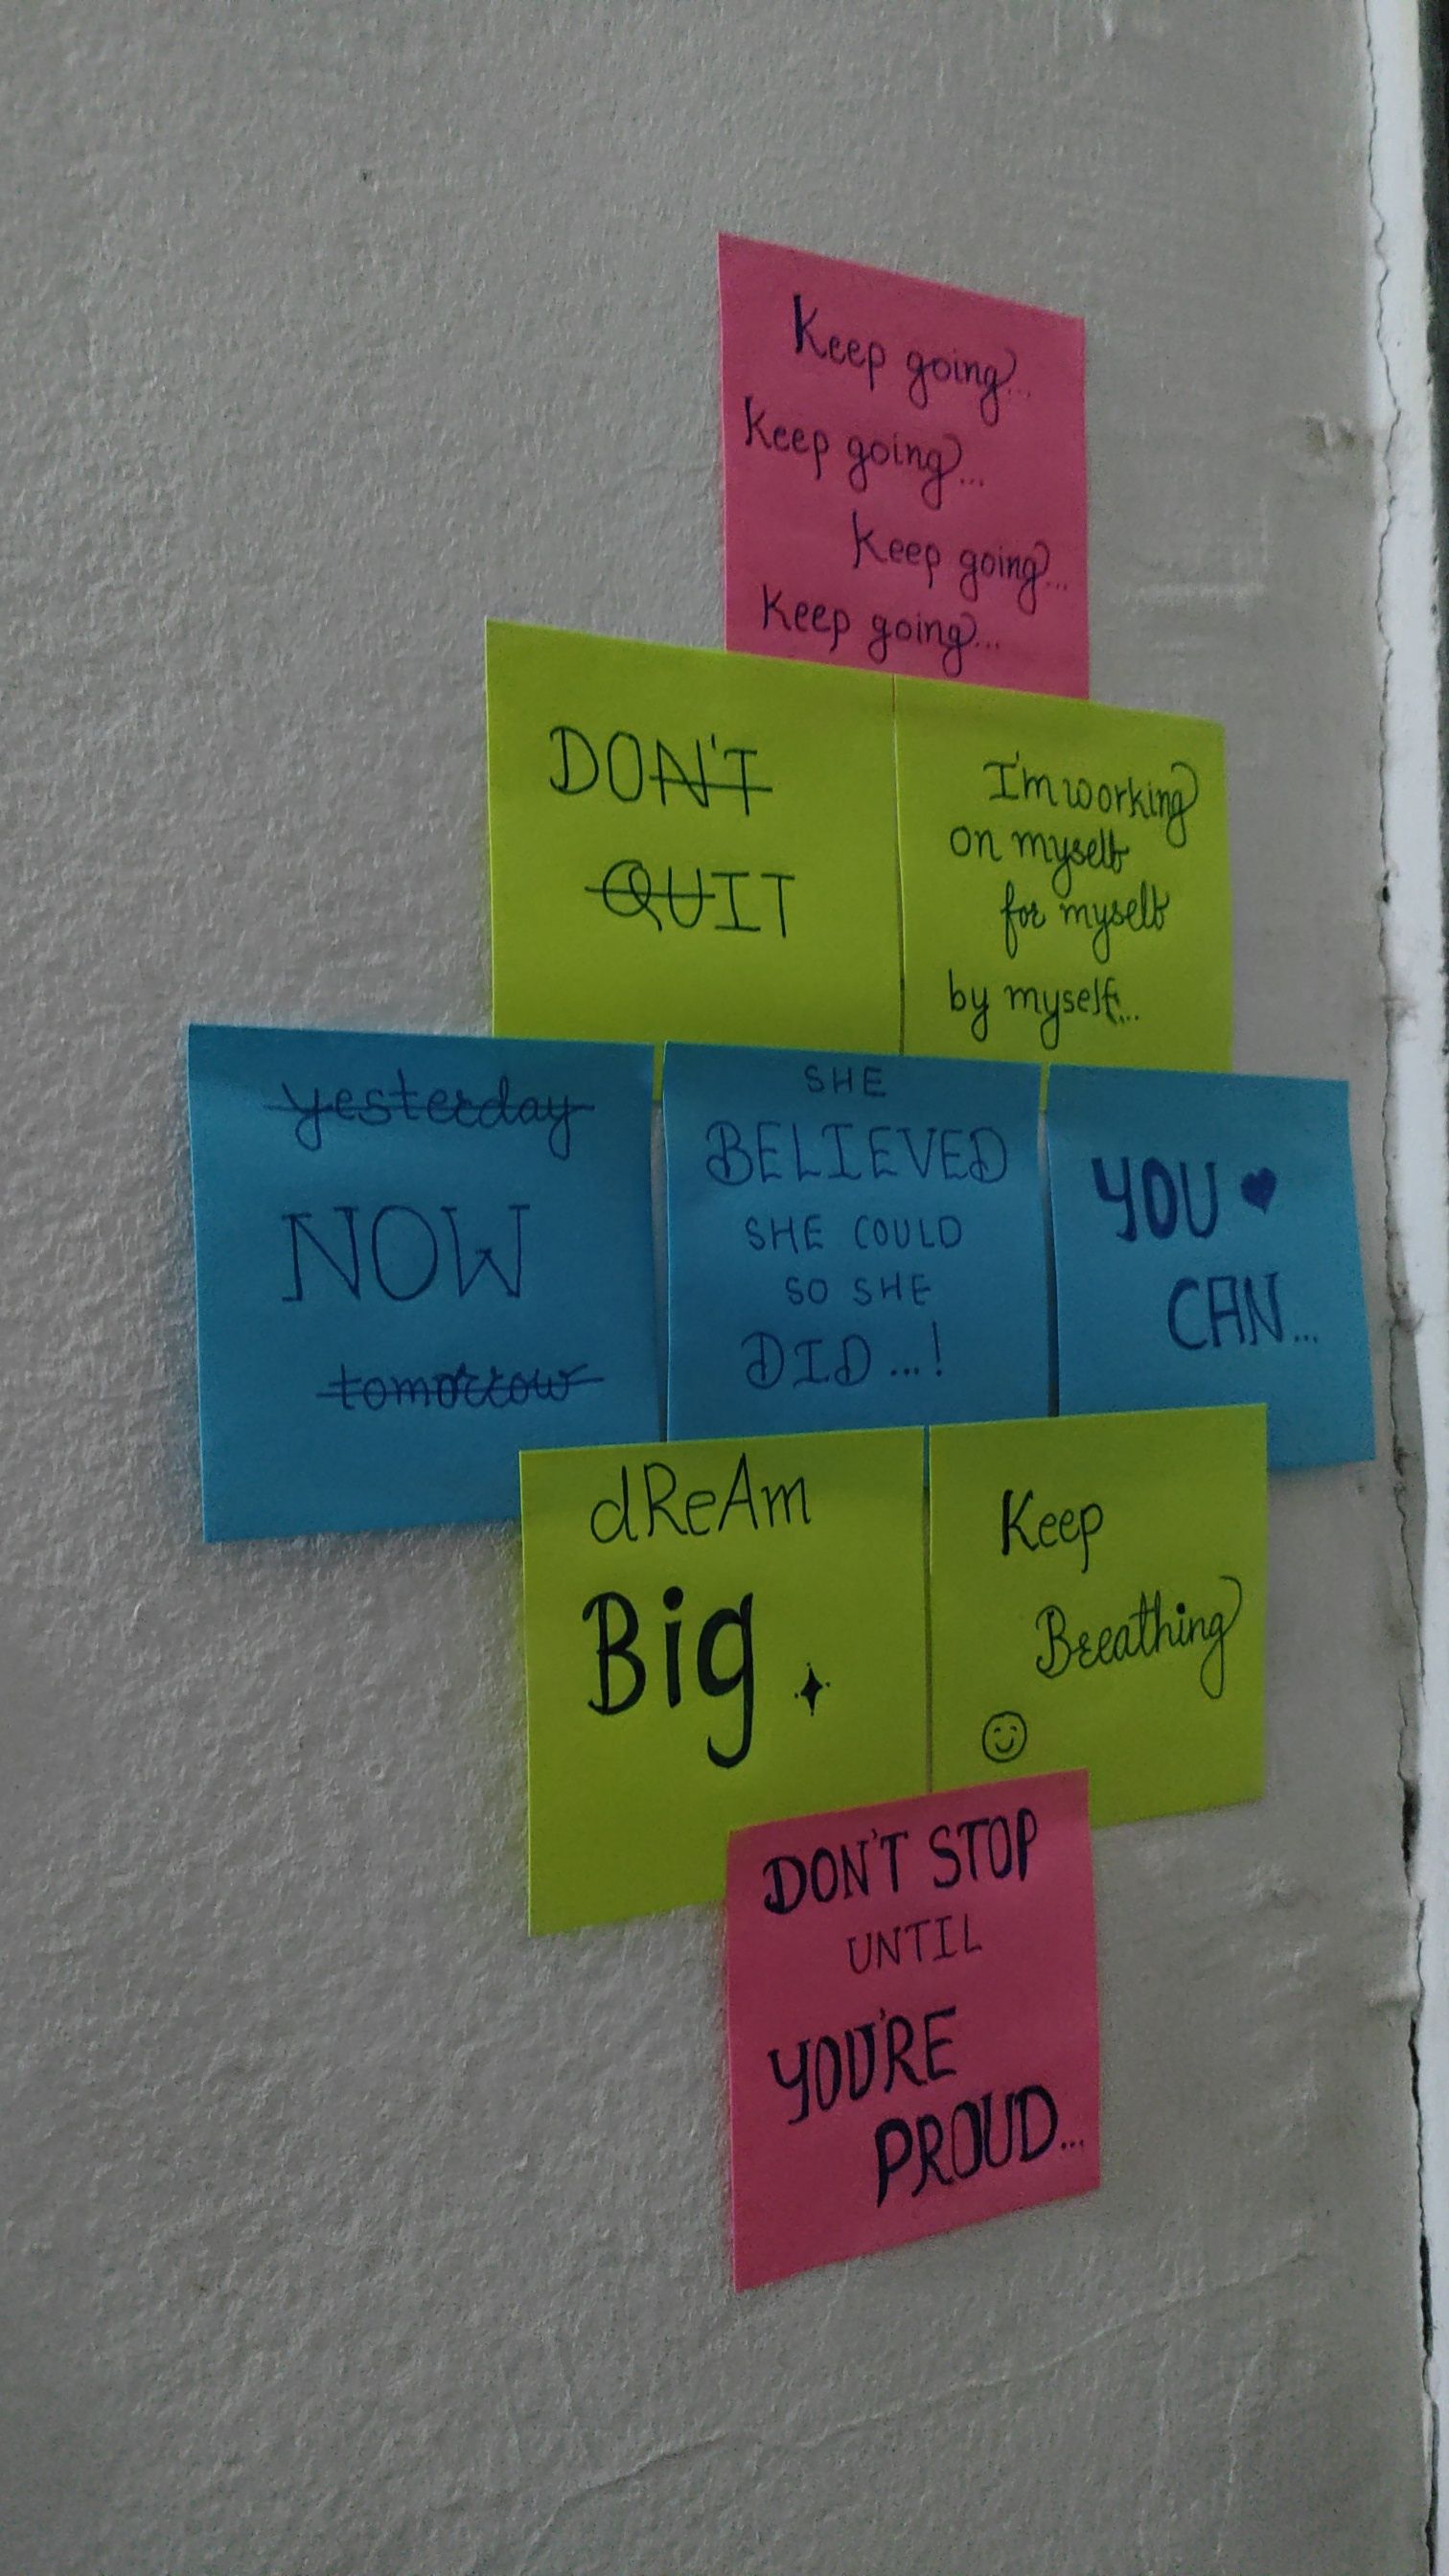 Keep going...
Keep going...
Keep going...
Keep going...
DON'T
QUIT
I'm working
on myself
for myself
by myself...
yesterday
NOW
tomorrow
SHE
BELIEVED
SHE COULD
SO SHE
DID...!
YOU ♥
CAN...
dReAm
Big
Keep
Breathing
DON'T STOP
UNTIL
YOU'RE
PROUD...